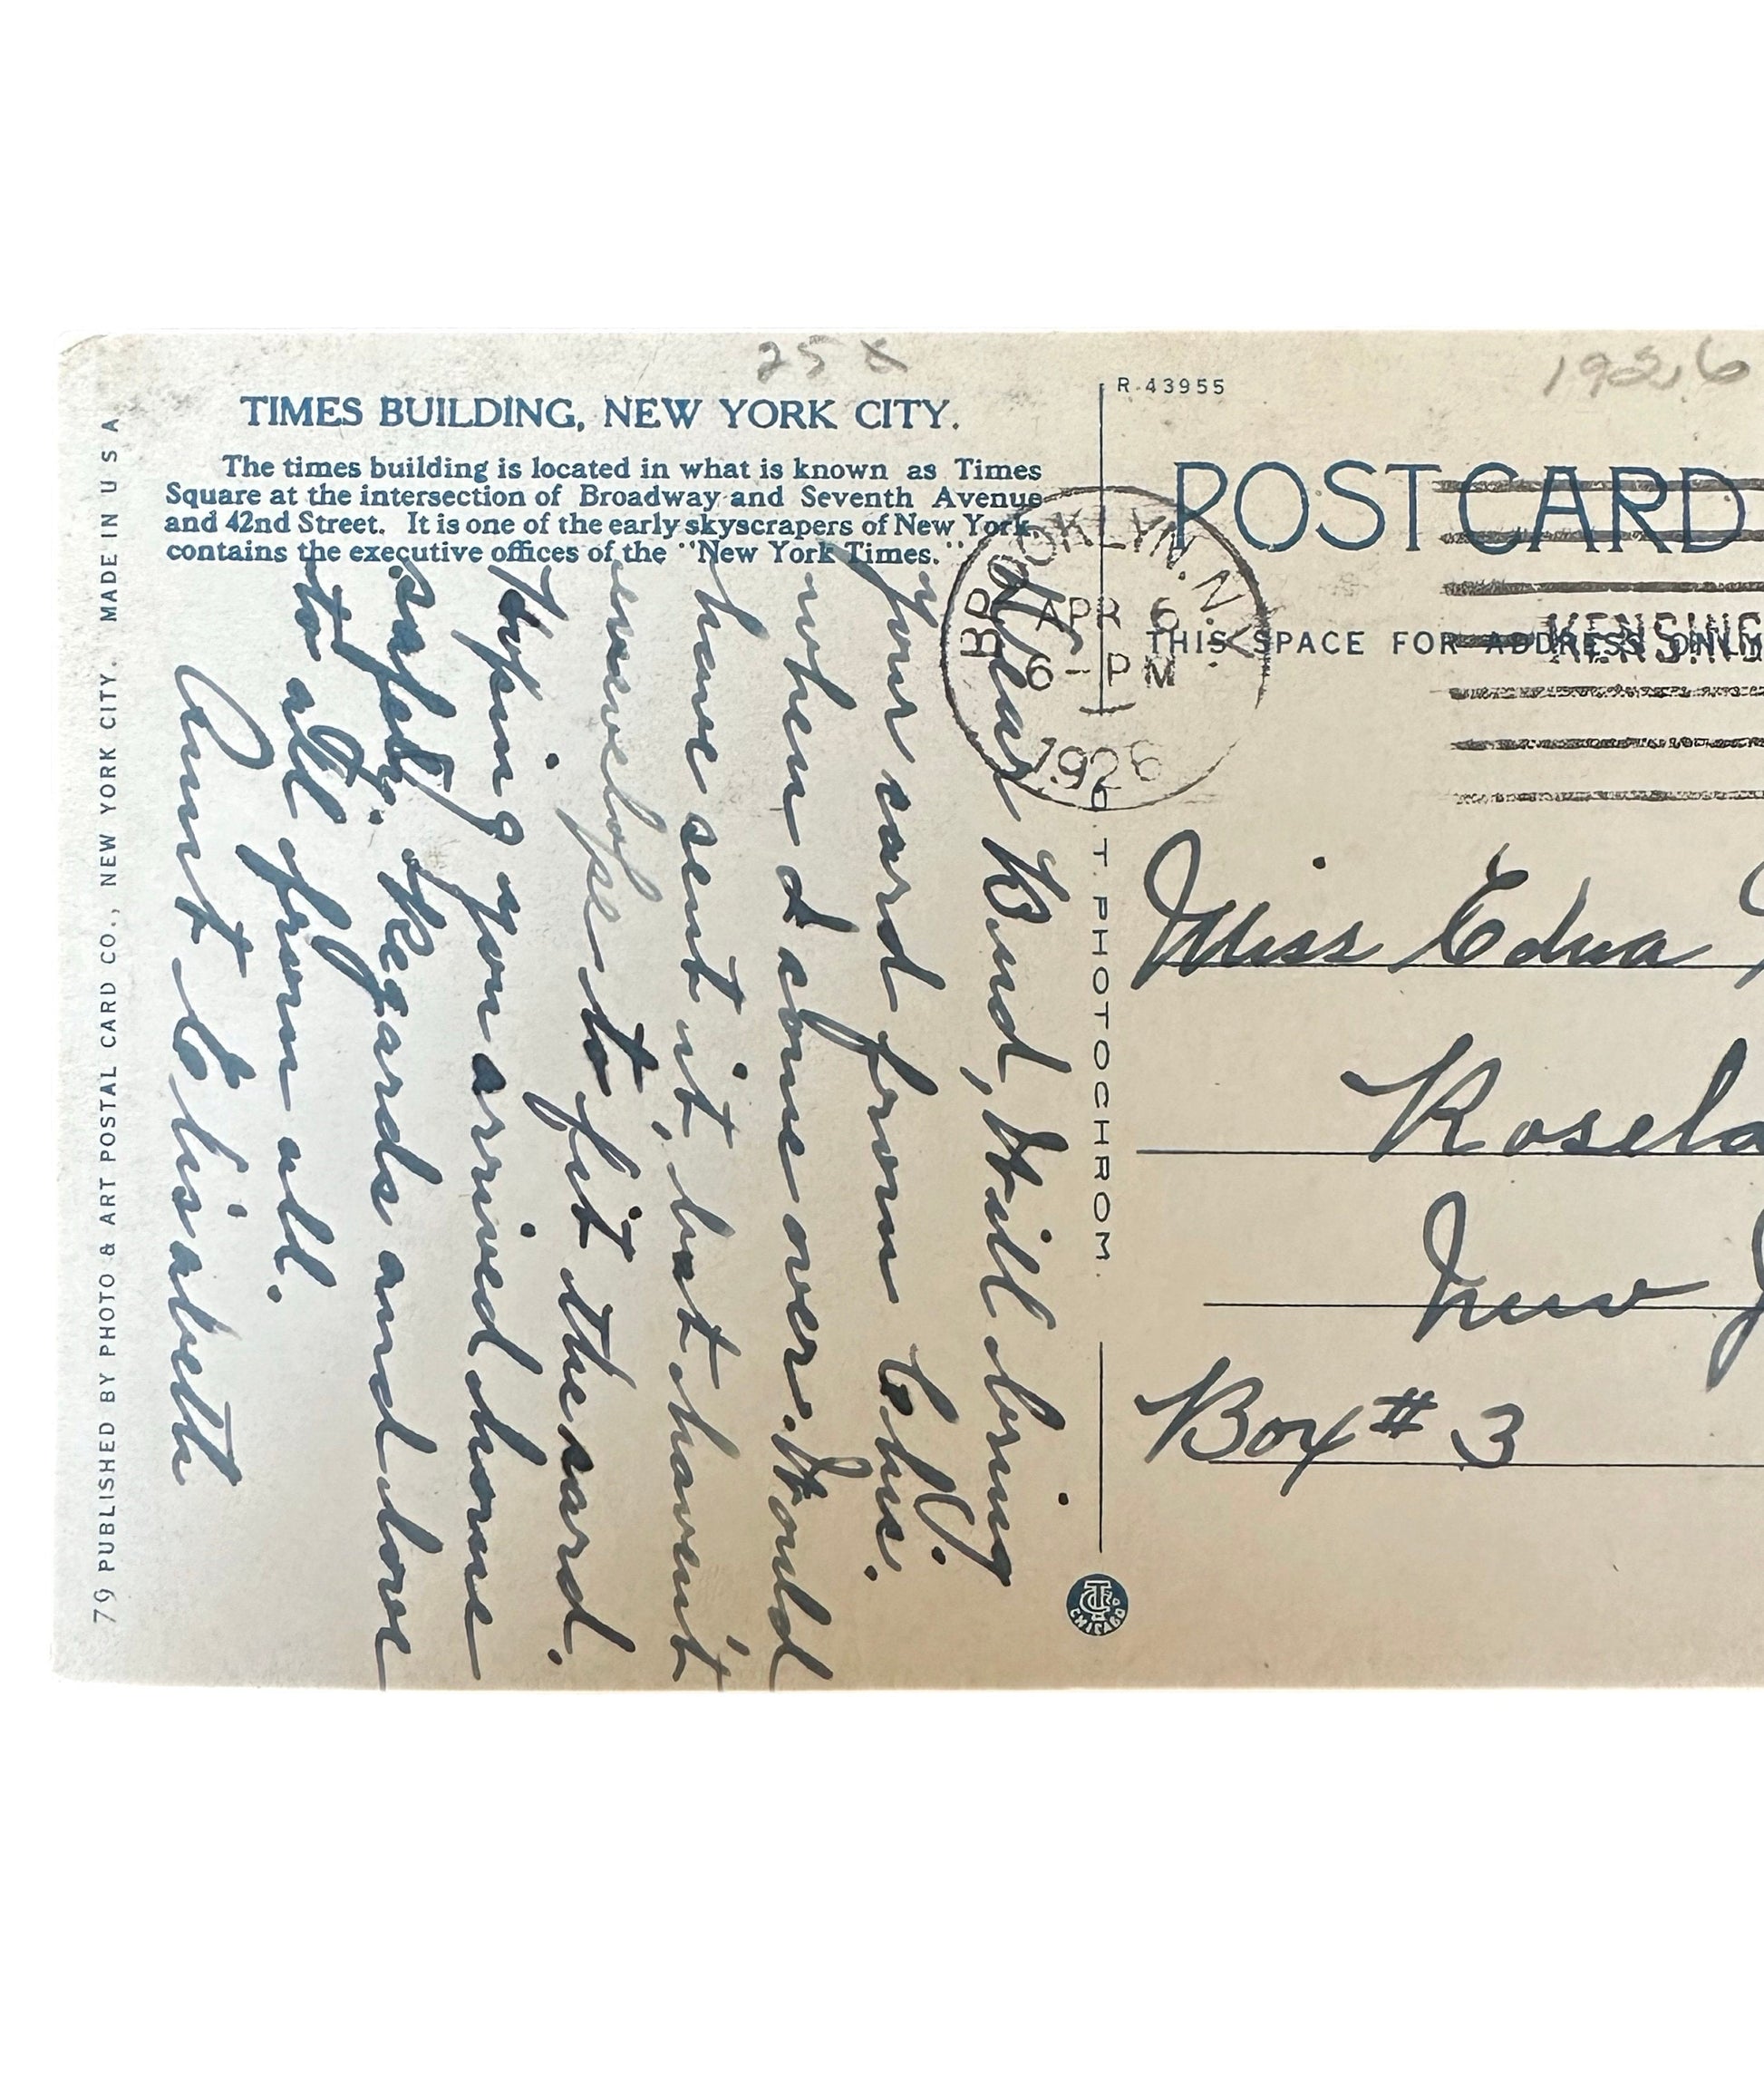 25¢
1926
TIMES BUILDING, NEW YORK CITY.
The times building is located in what is known as Times
Square at the intersection of Broadway and Seventh Avenue
and 42nd Street. It is one of the early skyscrapers of New York,
contains the executive offices of the "New York Times."
R-43955
POSTCARD
THIS SPACE FOR ADDRESS ONLY
BROOKLYN, N.Y.
APR 6
6-PM
1926
KENSING
Dear Bud, Will bring
your card from Chas.
when I come over. Would
have sent it, but haven't
envelope to fit the card.
Hoping you arrived home
safely. Regards and love
to all from all.
Aunt Elisabeth
Miss Edna
Rosela
New J
Box # 3
C. T. PHOTOCHROM.
CTCo
CHICAGO
79 PUBLISHED BY PHOTO & ART POSTAL CARD CO., NEW YORK CITY. MADE IN U S A